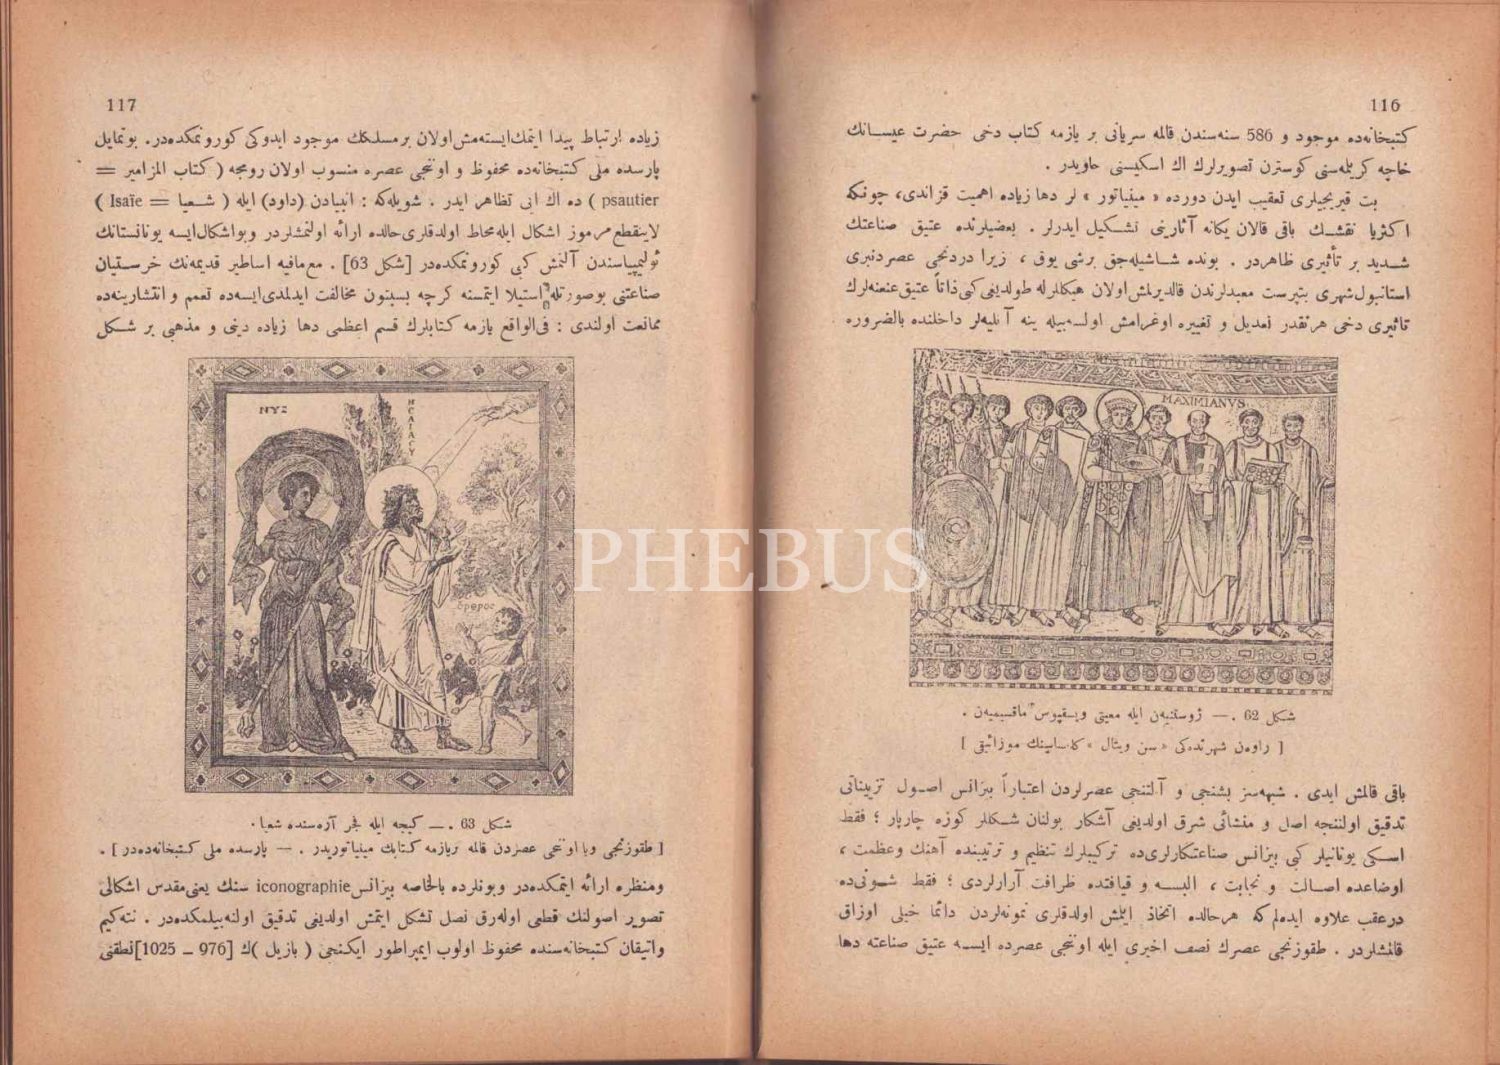 116
كتبخانه‌ده موجود و 586 سنه‌سندن قالمه سریانی بر یازمه كتاب دخی حضرت عیسانك
خاچه كریلمه‌سنی كوسترن تصویرلرك اك اسكیسنی حاویدر .
بت قیریجیلری تعقیب ایدن دورده « مینیاتور » لر دها زیاده اهمیت قزاندی، چونكه
اكثریا نقشك باقی قالان یكانه آثارینی تشكیل ایدرلر . بعضیلرنده عتیق صناعتك
شدید بر تأثیری ظاهردر . بونده شاشیله‌جق برشی یوق ، زیرا دردنجی عصردنبری
استانبول شهری بتپرست معبدلرندن قالدیرلمش اولان هیكللرله طولدیغی كبی ذاتاً عتیق عنعنه‌لرك
تاثیری دخی هرنقدر تعدیل و تغییره اوغرامش اولسه‌بیله ینه آتلیه‌لر داخلنده بالضروره
MAXIMIANVS
شكل 62 . — ژوستنیه‌ن ایله معیتی وپسقپوس ماقسیمیه‌ن .
[ راوه‌ن شهرنده‌كی « سن ویتال » كلیساسینك موزائیقی ]
باقی قالمش ایدی . شبهه‌سز بشنجی و آلتنجی عصرلردن اعتباراً بیزانس اصول تزییناتی
تدقیق اولننجه اصل و منشائی شرق اولدیغی آشكار بولنان شكللر كوزه چارپار ؛ فقط
اسكی یونانیلر كبی بیزانس صناعتكارلری‌ده تركیبلرك تنظیم و ترتیبنده آهنك وعظمت ،
اوضاعده اصالت و نجابت ، البسه و قیافتده ظرافت آرارلردی ؛ فقط شونی‌ده
درعقب علاوه ایده‌لم كه هرحالده اتخاذ ایتمش اولدقلری نمونه‌لردن دائما خیلی اوزاق
قالمشلردر . طقوزنجی عصرك نصف اخیری ایله اوننجی عصرده ایسه عتیق صناعته دها
117
زیاده ارتباط پیدا ایتمك ایسته‌مش اولان بر مسلكك موجود ایدوكی كورونمكده‌در. بوتمایل
پارسده ملی كتبخانه‌ده محفوظ و اوننجی عصره منسوب اولان رومجه ( كتاب المزامیر =
psautier ) ده اك ایی تظاهر ایدر . شویله‌كه : انبیادن (داود) ایله ( شعیا = Isaïe )
لاینقطع مرموز اشكال ایله محاط اولدقلری حالده ارائه اولنمشلردر وبواشكال ایسه یونانستانك
ئولیمپیاسندن آلنمش كبی كورونمكده‌در [شكل 63] . مع‌مافیه اساطیر قدیمه‌نك خرستیان
صناعتنی بوصورتله استیلا ایتمسنه كرچه بسبتون مخالفت ایدلمدی ایسه‌ده تعمم و انتشارینه‌ده
ممانعت اولندی : فی‌الواقع یازمه كتابلرك قسم اعظمی دها زیاده دینی و مذهبی بر شكل
ΝΥΞ
ΗСΑΙΑСΥ
ὄρθρος
شكل 63 . — كیجه ایله فجر آره‌سنده شعیا .
[ طقوزنجی ویا اوننجی عصردن قالمه بریازمه كتابك مینیاتوریدر . — پارسده ملی كتبخانه‌ده‌در ] .
ومنظره ارائه ایتمكده‌در وبونلرده بالخاصه بیزانس iconographie سنك یعنی مقدس اشكالی
تصویر اصولنك قطعی اوله‌رق نصل تشكل ایتمش اولدیغی تدقیق اولنه‌بیلمكده‌در . نته‌كیم
واتیقان كتبخانه‌سنده محفوظ اولوب ایمپراطور ایكنجی ( بازیل )ك [976 ـ 1025] نطقنی
PHEBUS